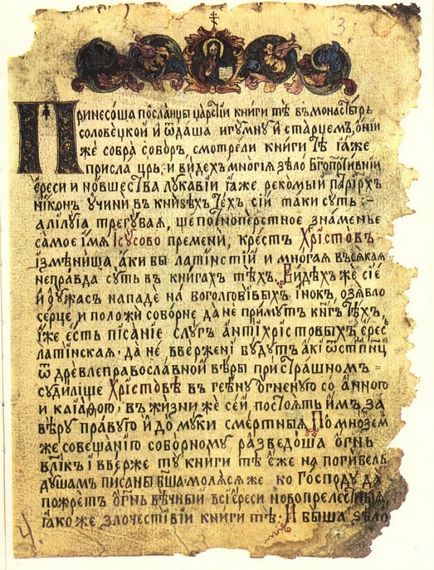 3.
Принесоша посланцы царстїи книги тѣ въ монастырь
соловецкой и ѿдаша игумну и старцемъ, они
же собра соборъ, смотрели книги тѣ ꙗже
присла црь. и видехъ многїя ѕѣло бгопротивнїи
ереси и новшества лукавїи ꙗже, рекомый патрїрхъ
никон учини в книѕѣхъ тѣхъ сїи таки суть:–
алїлуїа трегубая, шепоноперстное знаменье
самое імя Ісусово пременї, крестъ Хрїстовъ
ізмѣниша аки бы латінстїи и многая въсякая
неправда суть в книгахъ тѣхъ. Видѣхъ же сїе
и ужасъ нападе на боголювівыхъ інокъ, озявло
серце, и положи соборне да не прімутъ кнгъ тѣхъ,
іже єсть пісанїе слугъ антіхрїстовыхъ єрес
латінская. да не ввержені будутъ
ѿ древлеправославной вѣры при страшномъ
судилище Хрїстовѣ в геѣну огненуго со анного
и каїафою, въ жизни же сей постоять імъ за
вѣру правуго и до муки смертныя По мнозем
же совещанїго соборному разведоша огнь
влїкъ і вверже ту книги тѣ єже на погибель
душамъ писаны бша моляся же ко Господу да
пожретъ огнь вѣчный вси єреси новопрелесныя
ꙗкоже злочестївїи книги тѣ. И быша ѕѣло
4